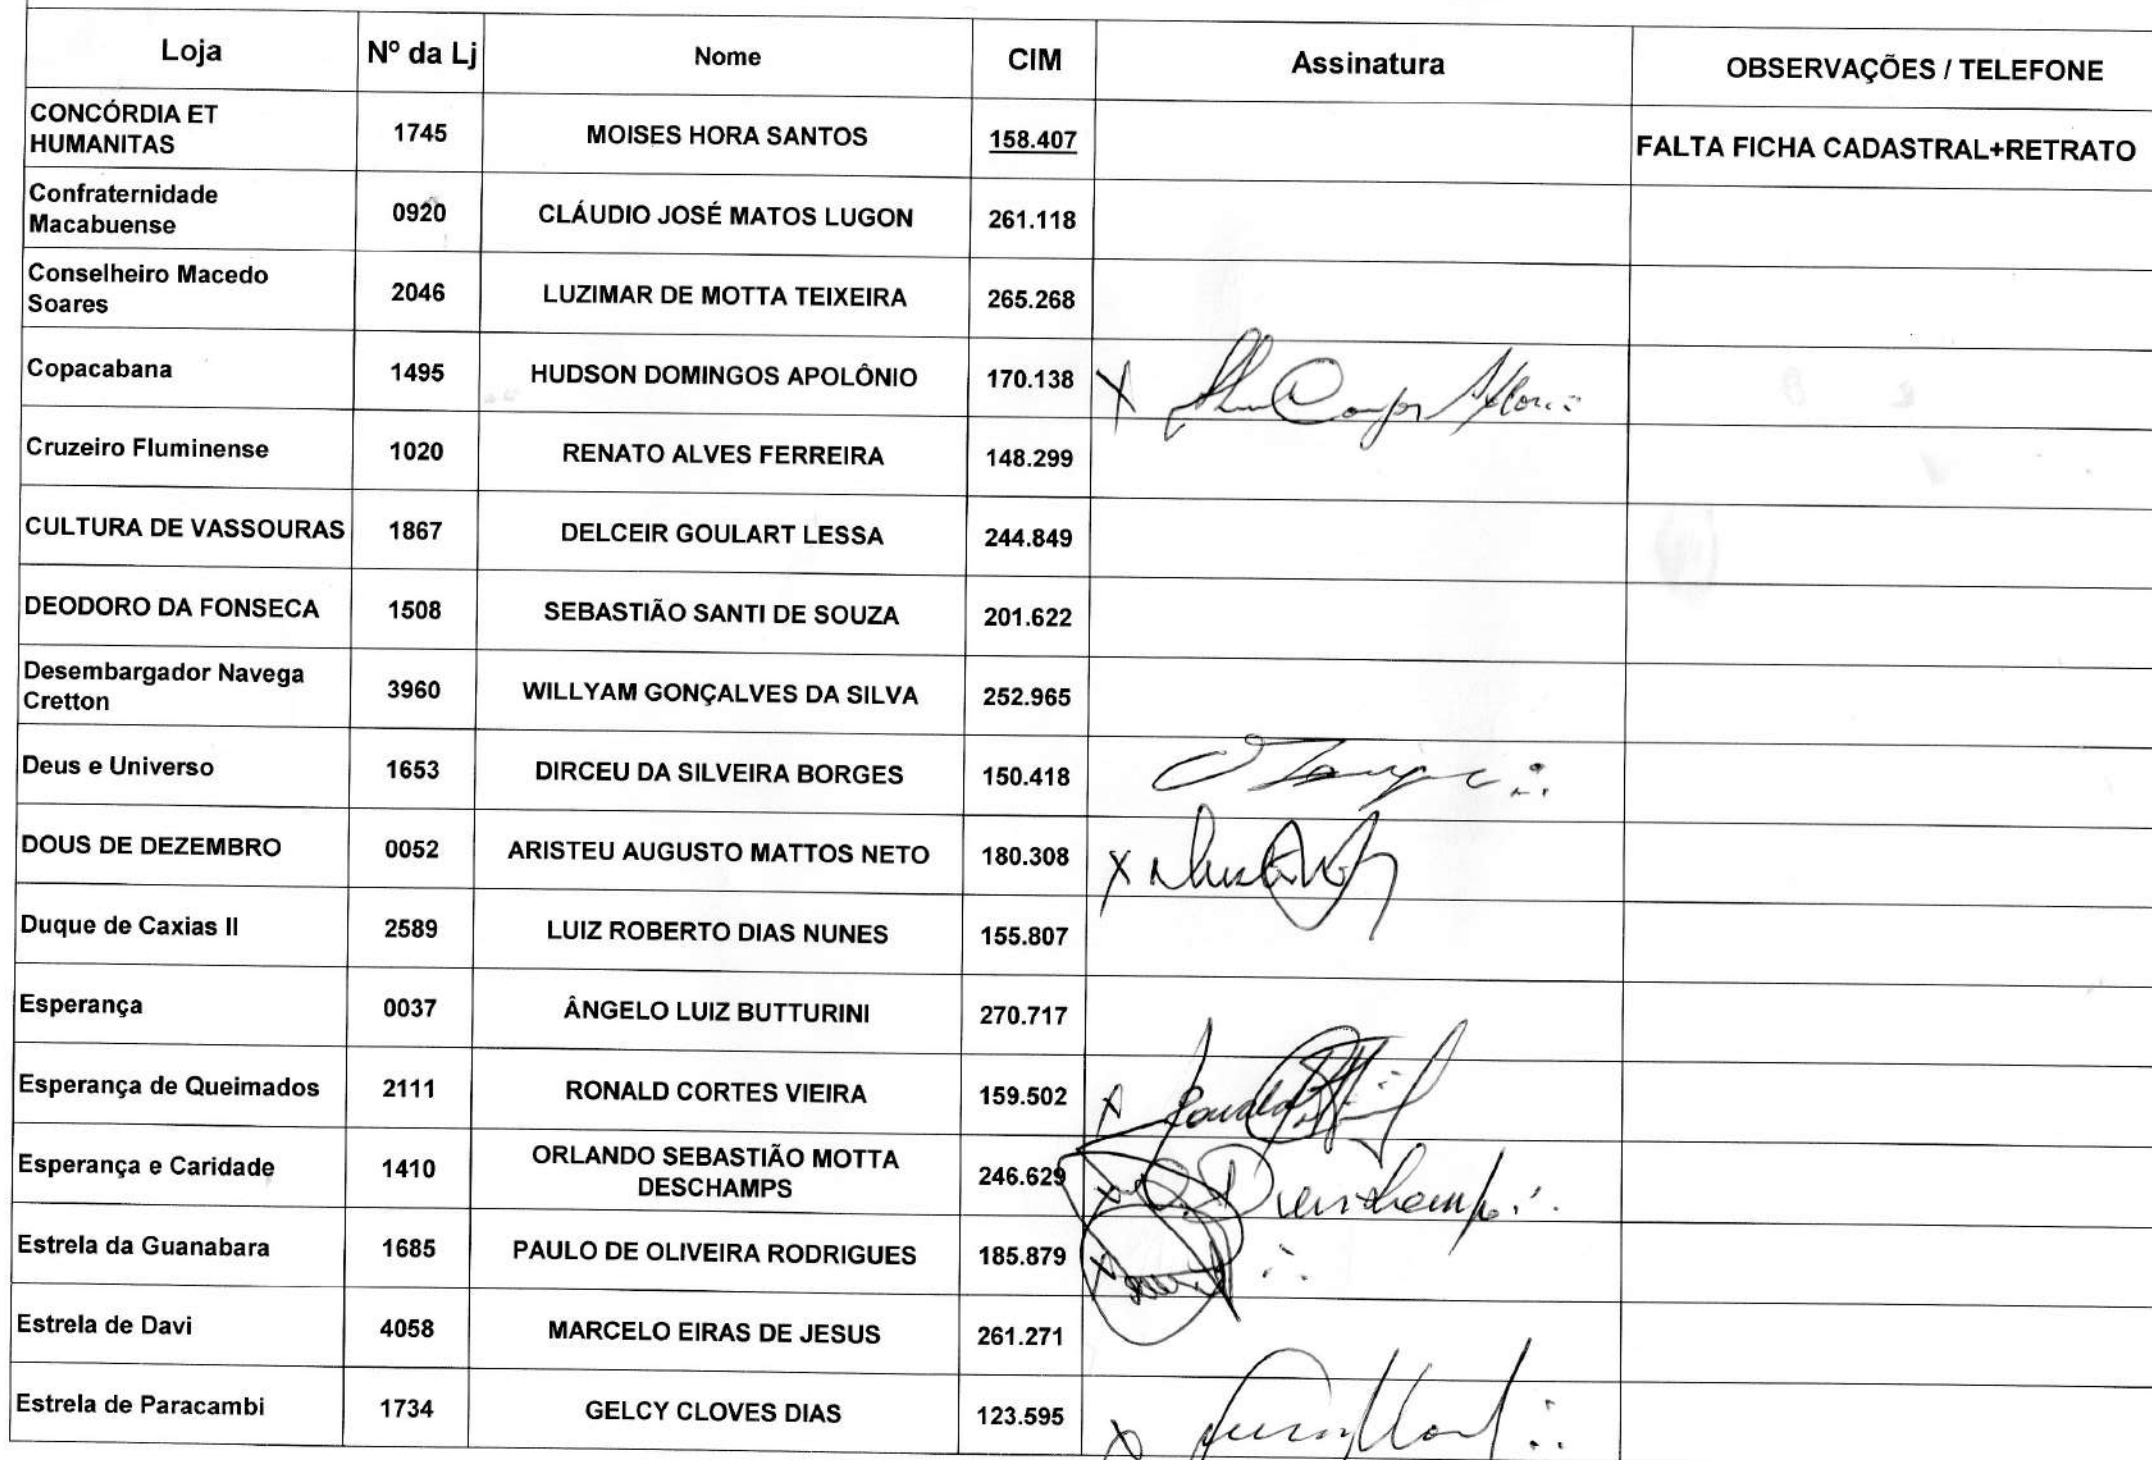 Loja Nº da Lj Nome CIM Assinatura OBSERVAÇÕES / TELEFONE
CONCÓRDIA ET
HUMANITAS 1745 MOISES HORA SANTOS 158.407 FALTA FICHA CADASTRAL+RETRATO
Confraternidade
Macabuense 0920 CLÁUDIO JOSÉ MATOS LUGON 261.118
Conselheiro Macedo
Soares 2046 LUZIMAR DE MOTTA TEIXEIRA 265.268
Copacabana 1495 HUDSON DOMINGOS APOLÔNIO 170.138 X
Cruzeiro Fluminense 1020 RENATO ALVES FERREIRA 148.299
CULTURA DE VASSOURAS 1867 DELCEIR GOULART LESSA 244.849
DEODORO DA FONSECA 1508 SEBASTIÃO SANTI DE SOUZA 201.622
Desembargador Navega
Cretton 3960 WILLYAM GONÇALVES DA SILVA 252.965
Deus e Universo 1653 DIRCEU DA SILVEIRA BORGES 150.418
DOUS DE DEZEMBRO 0052 ARISTEU AUGUSTO MATTOS NETO 180.308 X
Duque de Caxias II 2589 LUIZ ROBERTO DIAS NUNES 155.807
Esperança 0037 ÂNGELO LUIZ BUTTURINI 270.717
Esperança de Queimados 2111 RONALD CORTES VIEIRA 159.502 X
Esperança e Caridade 1410 ORLANDO SEBASTIÃO MOTTA
DESCHAMPS 246.629 X
Estrela da Guanabara 1685 PAULO DE OLIVEIRA RODRIGUES 185.879 X
Estrela de Davi 4058 MARCELO EIRAS DE JESUS 261.271
Estrela de Paracambi 1734 GELCY CLOVES DIAS 123.595 X